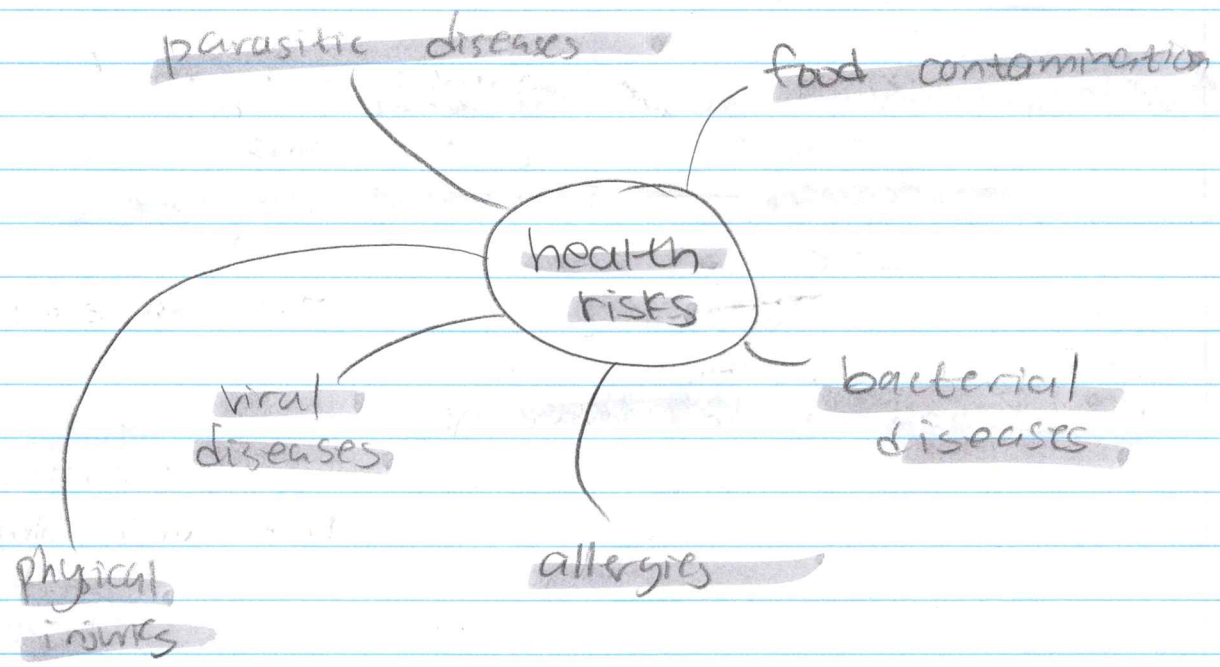 parasitic diseases
food contamination
health
risks
viral
diseases
bacterial
diseases
physical
injuries
allergies